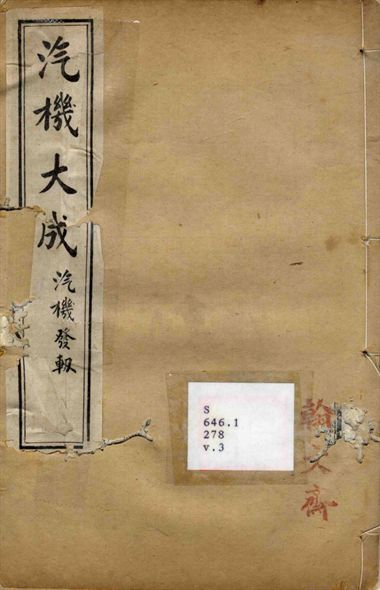 汽機大成
汽機發軔
翰文齋
S
646.1
278
v.3